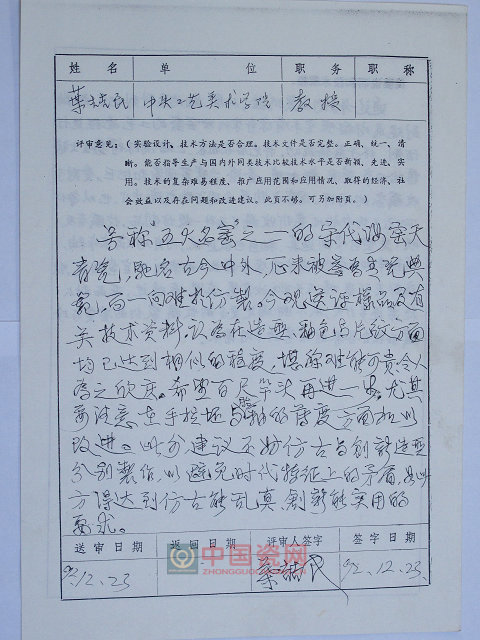 姓名 单位 职务 职称
叶喆民 中央工艺美术学院 教授
评审意见:(实验设计、技术方法是否合理。技术文件是否完整、正确、统一、清
晰。能否指导生产与国内外同类技术比较技术水平是否新颖、先进、实
用。技术的复杂难易程度、推广应用范围和应用情况、取得的经济、社
会效益以及存在问题和改进建议。此页不够。可另加附页。)
号称“五大名窑”之一的宋代汝窑天
青瓷,驰名古今中外,历来被誉为青瓷典
范,而一向难於仿製。今观送评样品及有
关技术资料,认为在造型、釉色与片纹方面
均已达到相似的程度,堪称难能可贵,令人
为之欣庆。希望百尺竿头再进一步。尤其
要注意在手拉坯与釉的厚度方面加以
改进。此外,建议不妨仿古与创新造型
分别製作,以避免时代特征上的矛盾,如此
方得达到仿古能乱真,創新能实用的
要求。
送审日期 返回日期 评审人签字 签字日期
92.12.23 叶喆民 92.12.23
中国瓷网